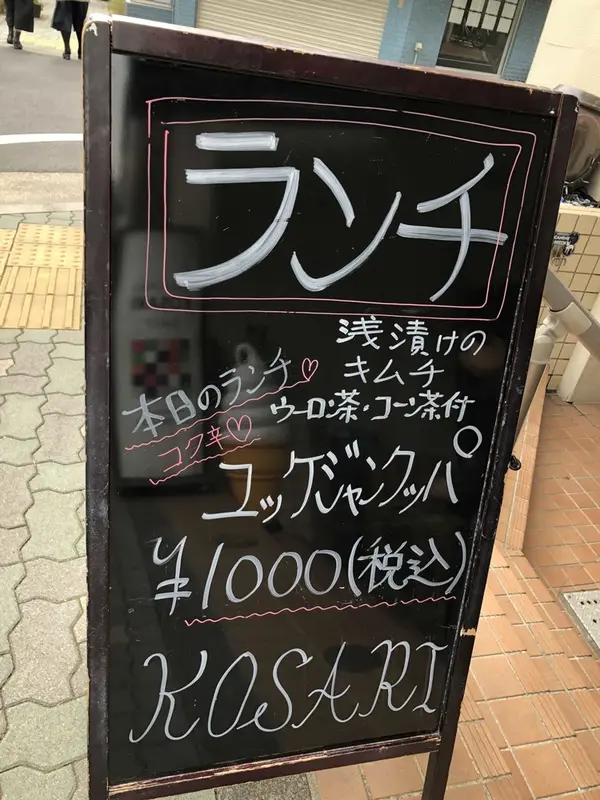 ランチ
浅漬けの
キムチ
本日のランチ♡
ウーロン茶・コーン茶付
コク辛♡
ユッケジャンクッパ
¥1000(税込)
KOSARI